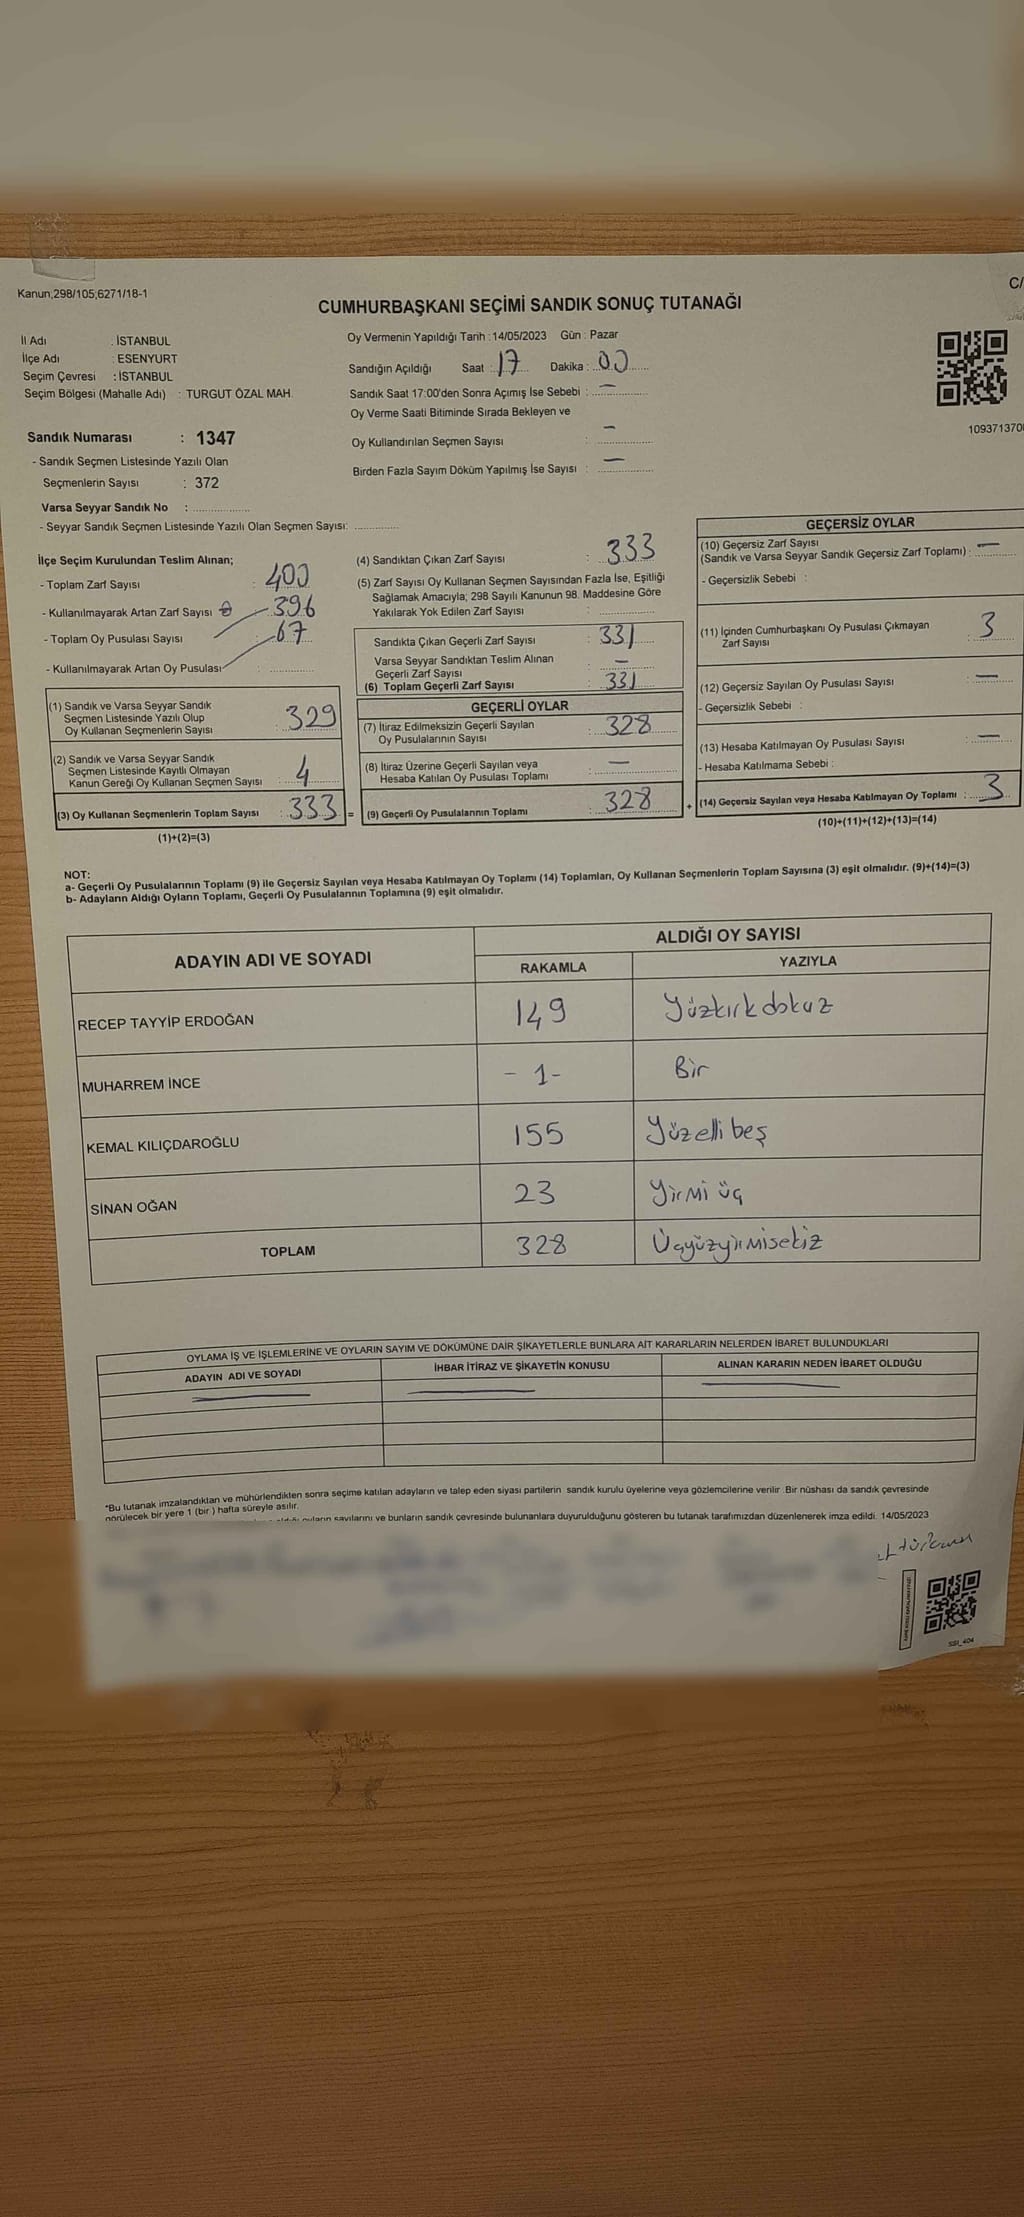 Kanun;298/105;6271/18-1
C/
CUMHURBAŞKANI SEÇİMİ SANDIK SONUÇ TUTANAĞI
İl Adı : İSTANBUL
İlçe Adı : ESENYURT
Seçim Çevresi : İSTANBUL
Seçim Bölgesi (Mahalle Adı) : TURGUT ÖZAL MAH.
Oy Vermenin Yapıldığı Tarih : 14/05/2023 Gün : Pazar
Sandığın Açıldığı Saat : 17 Dakika : 00
Sandık Saat 17:00'den Sonra Açımış İse Sebebi : —
Oy Verme Saati Bitiminde Sırada Bekleyen ve
Oy Kullandırılan Seçmen Sayısı : —
Birden Fazla Sayım Döküm Yapılmış İse Sayısı : —
Sandık Numarası : 1347
- Sandık Seçmen Listesinde Yazılı Olan
Seçmenlerin Sayısı : 372
Varsa Seyyar Sandık No :
- Seyyar Sandık Seçmen Listesinde Yazılı Olan Seçmen Sayısı:
İlçe Seçim Kurulundan Teslim Alınan;
- Toplam Zarf Sayısı : 400
- Kullanılmayarak Artan Zarf Sayısı 396
- Toplam Oy Pusulası Sayısı : 67
- Kullanılmayarak Artan Oy Pusulası :
(1) Sandık ve Varsa Seyyar Sandık
Seçmen Listesinde Yazılı Olup
Oy Kullanan Seçmenlerin Sayısı : 329
(2) Sandık ve Varsa Seyyar Sandık
Seçmen Listesinde Kayıtlı Olmayan
Kanun Gereği Oy Kullanan Seçmen Sayısı : 4
(3) Oy Kullanan Seçmenlerin Toplam Sayısı : 333 =
(1)+(2)=(3)
(4) Sandıktan Çıkan Zarf Sayısı : 333
(5) Zarf Sayısı Oy Kullanan Seçmen Sayısından Fazla İse, Eşitliği
Sağlamak Amacıyla; 298 Sayılı Kanunun 98. Maddesine Göre
Yakılarak Yok Edilen Zarf Sayısı :
Sandıkta Çıkan Geçerli Zarf Sayısı : 331
Varsa Seyyar Sandıktan Teslim Alınan
Geçerli Zarf Sayısı : —
(6) Toplam Geçerli Zarf Sayısı : 331
GEÇERLİ OYLAR
(7) İtiraz Edilmeksizin Geçerli Sayılan
Oy Pusulalarının Sayısı : 328
(8) İtiraz Üzerine Geçerli Sayılan veya
Hesaba Katılan Oy Pusulası Toplamı : —
(9) Geçerli Oy Pusulalarının Toplamı : 328 +
109371370
GEÇERSİZ OYLAR
(10) Geçersiz Zarf Sayısı
(Sandık ve Varsa Seyyar Sandık Geçersiz Zarf Toplamı) : —
- Geçersizlik Sebebi :
(11) İçinden Cumhurbaşkanı Oy Pusulası Çıkmayan
Zarf Sayısı : 3
(12) Geçersiz Sayılan Oy Pusulası Sayısı : —
- Geçersizlik Sebebi :
(13) Hesaba Katılmayan Oy Pusulası Sayısı : —
- Hesaba Katılmama Sebebi :
(14) Geçersiz Sayılan veya Hesaba Katılmayan Oy Toplamı : 3
(10)+(11)+(12)+(13)=(14)
NOT:
a- Geçerli Oy Pusulalarının Toplamı (9) ile Geçersiz Sayılan veya Hesaba Katılmayan Oy Toplamı (14) Toplamları, Oy Kullanan Seçmenlerin Toplam Sayısına (3) eşit olmalıdır. (9)+(14)=(3)
b- Adayların Aldığı Oyların Toplamı, Geçerli Oy Pusulalarının Toplamına (9) eşit olmalıdır.
ADAYIN ADI VE SOYADI ALDIĞI OY SAYISI
RAKAMLA YAZIYLA
RECEP TAYYİP ERDOĞAN 149 Yüzkırkdokuz
MUHARREM İNCE - 1 - Bir
KEMAL KILIÇDAROĞLU 155 Yüzelli beş
SİNAN OĞAN 23 Yirmi üç
TOPLAM 328 Üçyüzyirmisekiz
OYLAMA İŞ VE İŞLEMLERİNE VE OYLARIN SAYIM VE DÖKÜMÜNE DAİR ŞİKAYETLERLE BUNLARA AİT KARARLARIN NELERDEN İBARET BULUNDUKLARI
ADAYIN ADI VE SOYADI İHBAR İTİRAZ VE ŞİKAYETİN KONUSU ALINAN KARARIN NEDEN İBARET OLDUĞU
*Bu tutanak imzalandıktan ve mühürlendikten sonra seçime katılan adayların ve talep eden siyasi partilerin sandık kurulu üyelerine veya gözlemcilerine verilir. Bir nüshası da sandık çevresinde
görülecek bir yere 1 (bir) hafta süreyle asılır.
oyların sayılarını ve bunların sandık çevresinde bulunanlara duyurulduğunu gösteren bu tutanak tarafımızdan düzenlenerek imza edildi. 14/05/2023
SSI_404